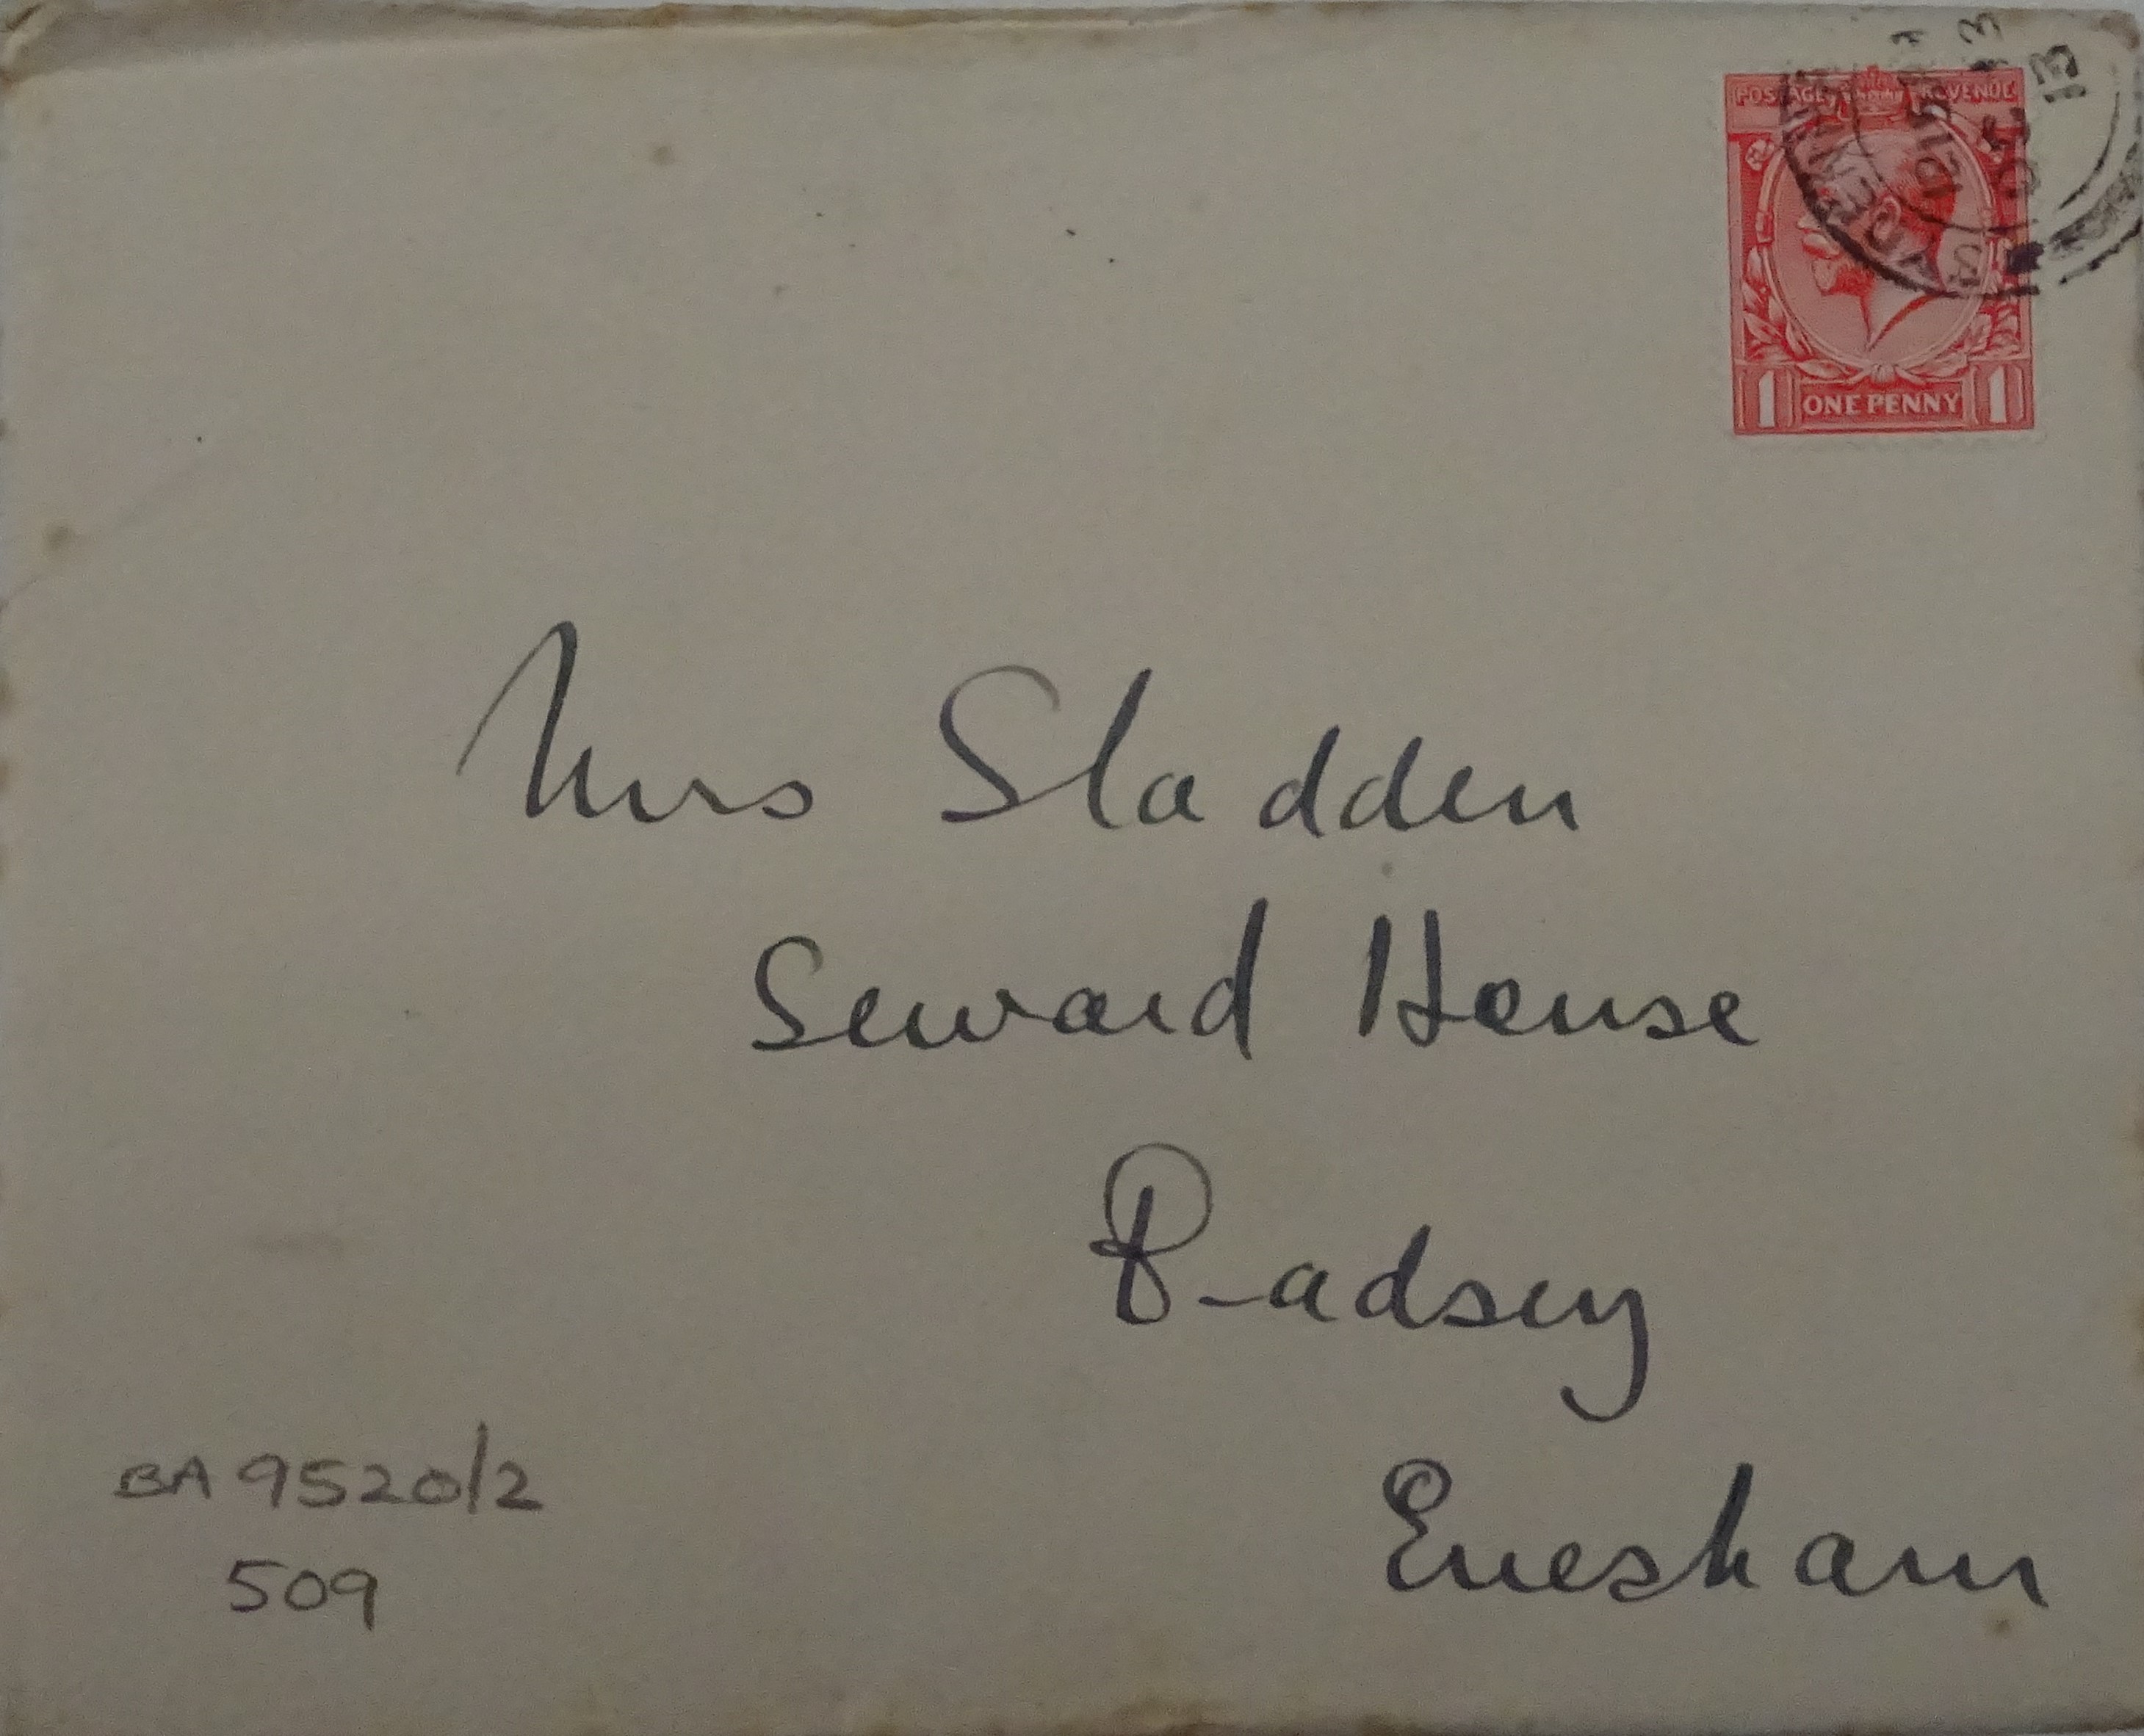 POSTAGE REVENUE
13
1 ONE PENNY 1
Mrs Sladden
Seward House
Badsey
Evesham
BA 9520/2
509